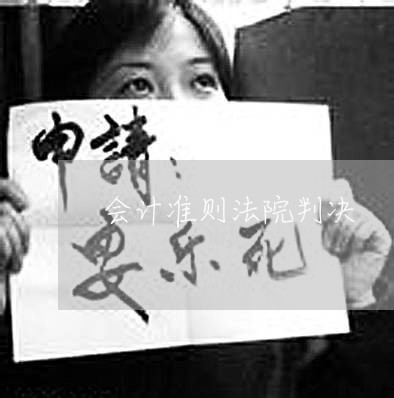 申請：
会计准则法院判决
要乐死